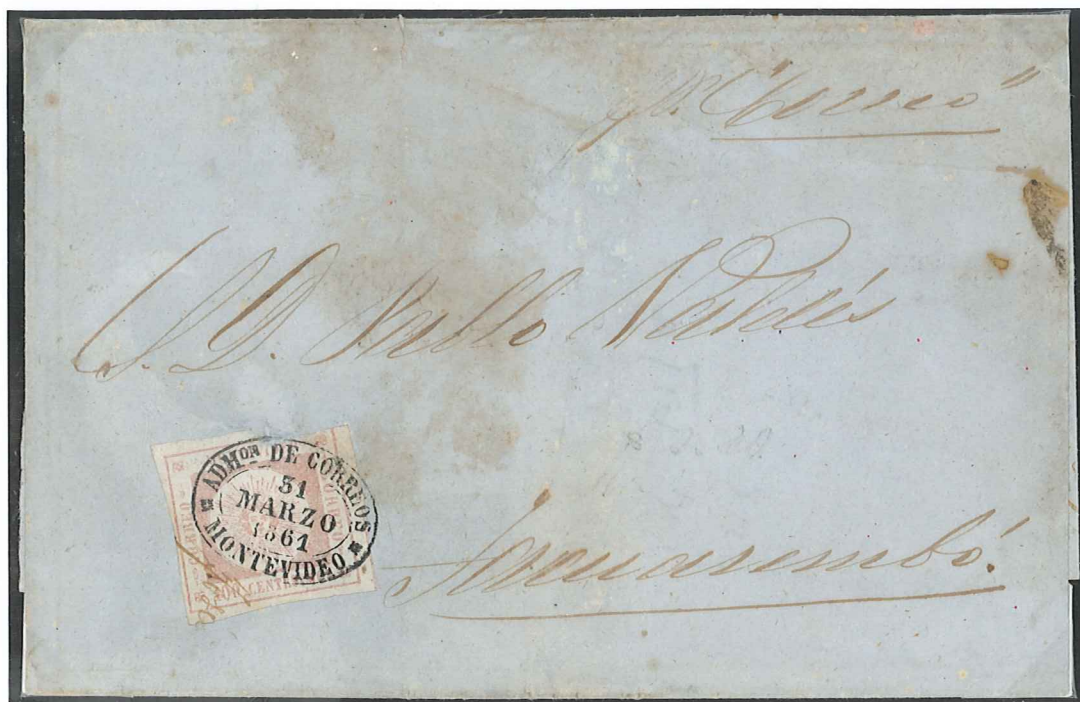 pr. "Correo"
S. D. Pablo Valdés
ADMOR DE CORREOS
31
MARZO
1861
MONTEVIDEO
Tacuarembó.